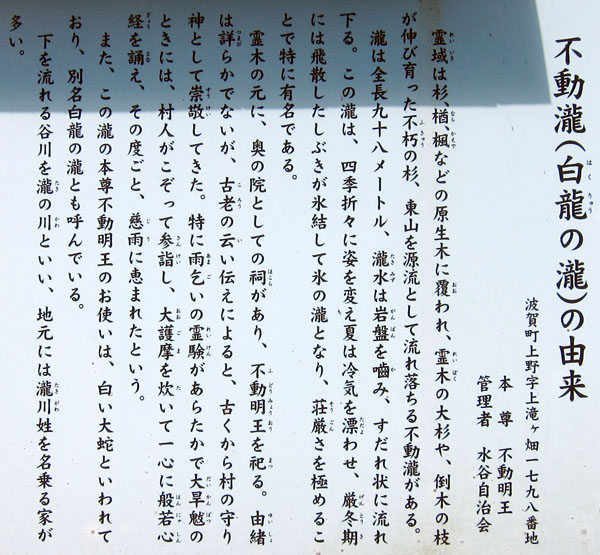 不動瀧(白龍の瀧)の由来
波賀町上野字上滝ヶ畑一七九八番地
本尊 不動明王
管理者 水谷自治会
霊域は杉、楢、楓などの原生木に覆われ、霊木の大杉や、倒木の枝
が伸び育った不朽の杉、東山を源流として流れ落ちる不動瀧がある。
瀧は全長九十八メートル、瀧水は岩盤を嚙み、すだれ状に流れ
下る。この瀧は、四季折々に姿を変え夏は冷気を漂わせ、厳冬期
には飛散したしぶきが氷結して氷の瀧となり、荘厳さを極めるこ
とで特に有名である。
霊木の元に、奥の院としての祠があり、不動明王を祀る。由緒
は詳らかでないが、古老の云い伝えによると、古くから村の守り
神として崇敬してきた。特に雨乞いの霊験があらたかで大旱魃の
ときには、村人がこぞって参詣し、大護摩を炊いて一心に般若心
経を誦え、その度ごと、慈雨に恵まれたという。
また、この瀧の本尊不動明王のお使いは、白い大蛇といわれて
おり、別名白龍の瀧とも呼んでいる。
下を流れる谷川を瀧の川といい、地元には瀧川姓を名乗る家が
多い。